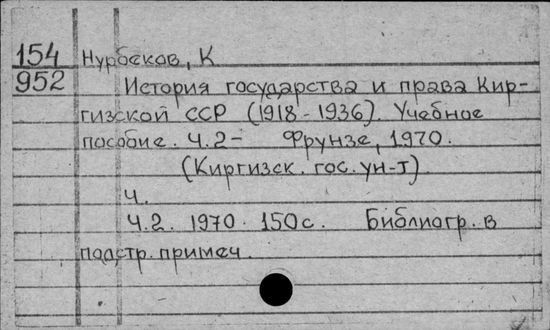 154 Нурбеков, К
952 История государства и права Кир-
гизской ССР (1918-1936). Учебное
пособие. Ч.2- Фрунзе, 1970.
(Киргизск. гос. ун-т).
Ч.
Ч.2. 1970. 150с. Библиогр. в
подстр. примеч.